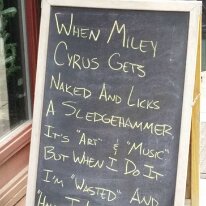 WHEN MILEY
CYRUS GETS
NAKED AND LICKS
A SLEDGEHAMMER
IT'S "ART" & "MUSIC"
BUT WHEN I DO IT
I'M "WASTED" AND
"HAVE TO